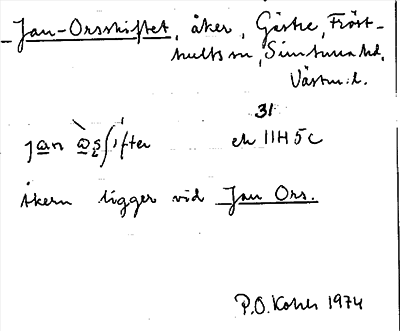 Jan-Orsskiftet, åker, Gästre, Fröst-
hults sn, Simtuna hd.
Västm. l.
31
ek 11H 5c
åkern ligger vid Jan Ors.
P.O. Kohls 1974